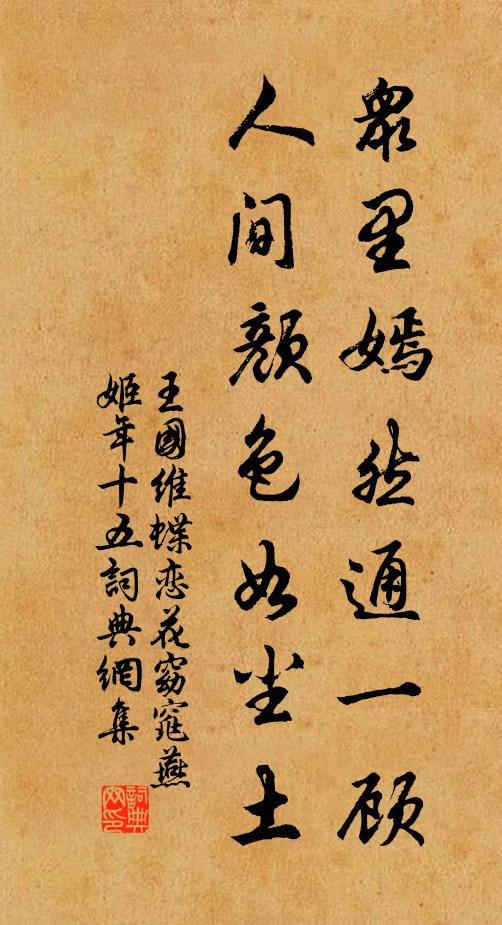 眾里嫣然通一顾
人间颜色如尘土
王國維蝶恋花窈窕燕
姬年十五詞典網集
詞典网印